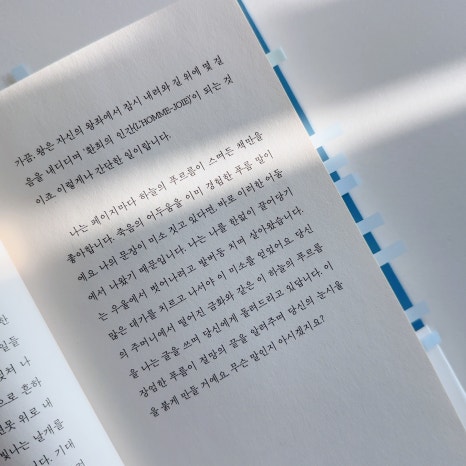 가끔, 왕은 자신의 왕좌에서 잠시 내려와 길 위에 몇 걸
음을 내디디며 '환희의 인간(L'HOMME-JOIE)'이 되는 것
이죠. 이렇게나 간단한 일이랍니다.
나는 페이지마다 하늘의 푸르름이 스며든 책만을
좋아합니다. 죽음의 어두움을 이미 경험한 푸름 말이
에요. 나의 문장이 미소 짓고 있다면, 바로 이러한 어둠
에서 나왔기 때문입니다. 나는 나를 한없이 끌어당기
는 우울에서 벗어나려고 발버둥 치며 살아왔습니다.
많은 대가를 치르고 나서야 이 미소를 얻었어요. 당신
의 주머니에서 떨어진 금화와 같은 이 하늘의 푸르름
을 나는 글을 쓰며 당신에게 돌려드리고 있답니다. 이
장엄한 푸름이 절망의 끝을 알려주며 당신의 눈시울
을 붉게 만들 거예요. 무슨 말인지 아시겠지요?
한
일들
나
으로 흔하
연못 위로 내
빛나는 날개를
니다. 기대